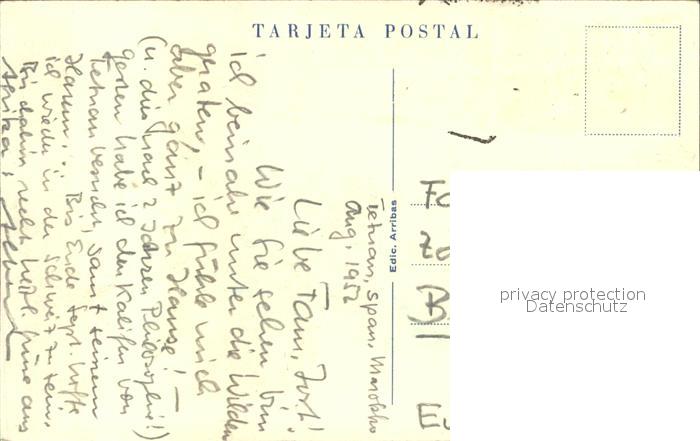 TARJETA POSTAL
Edic. Arribas
Tetuan, Span. Marokko
Aug. 1952
Liebe Fam. Jost!
Wie Sie sehen bin
ich beinahe unter die Wilden
geraten, - ich fühle mich
aber ganz zu Hause! -
(u. dies nach 2 Jahren Philosophie!)
Gestern habe ich den Kalifen von
Tetuan besucht, samt seinem
Harem! : Bis Ende Sept. hoffe
ich wieder in der Schweiz zu sein.
Bis dahin recht herzl. Grüsse aus
Afrika:
privacy protection
Datenschutz